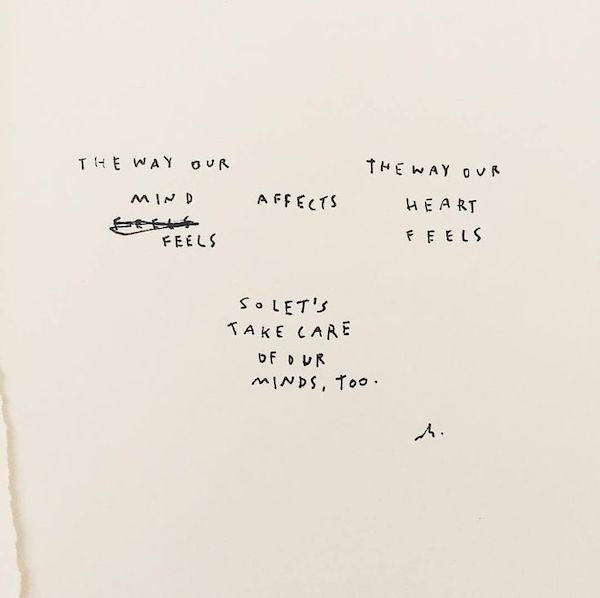 THE WAY OUR
MIND
FEELS
AFFECTS
THE WAY OUR
HEART
FEELS
SO LET'S
TAKE CARE
OF OUR
MINDS, TOO.